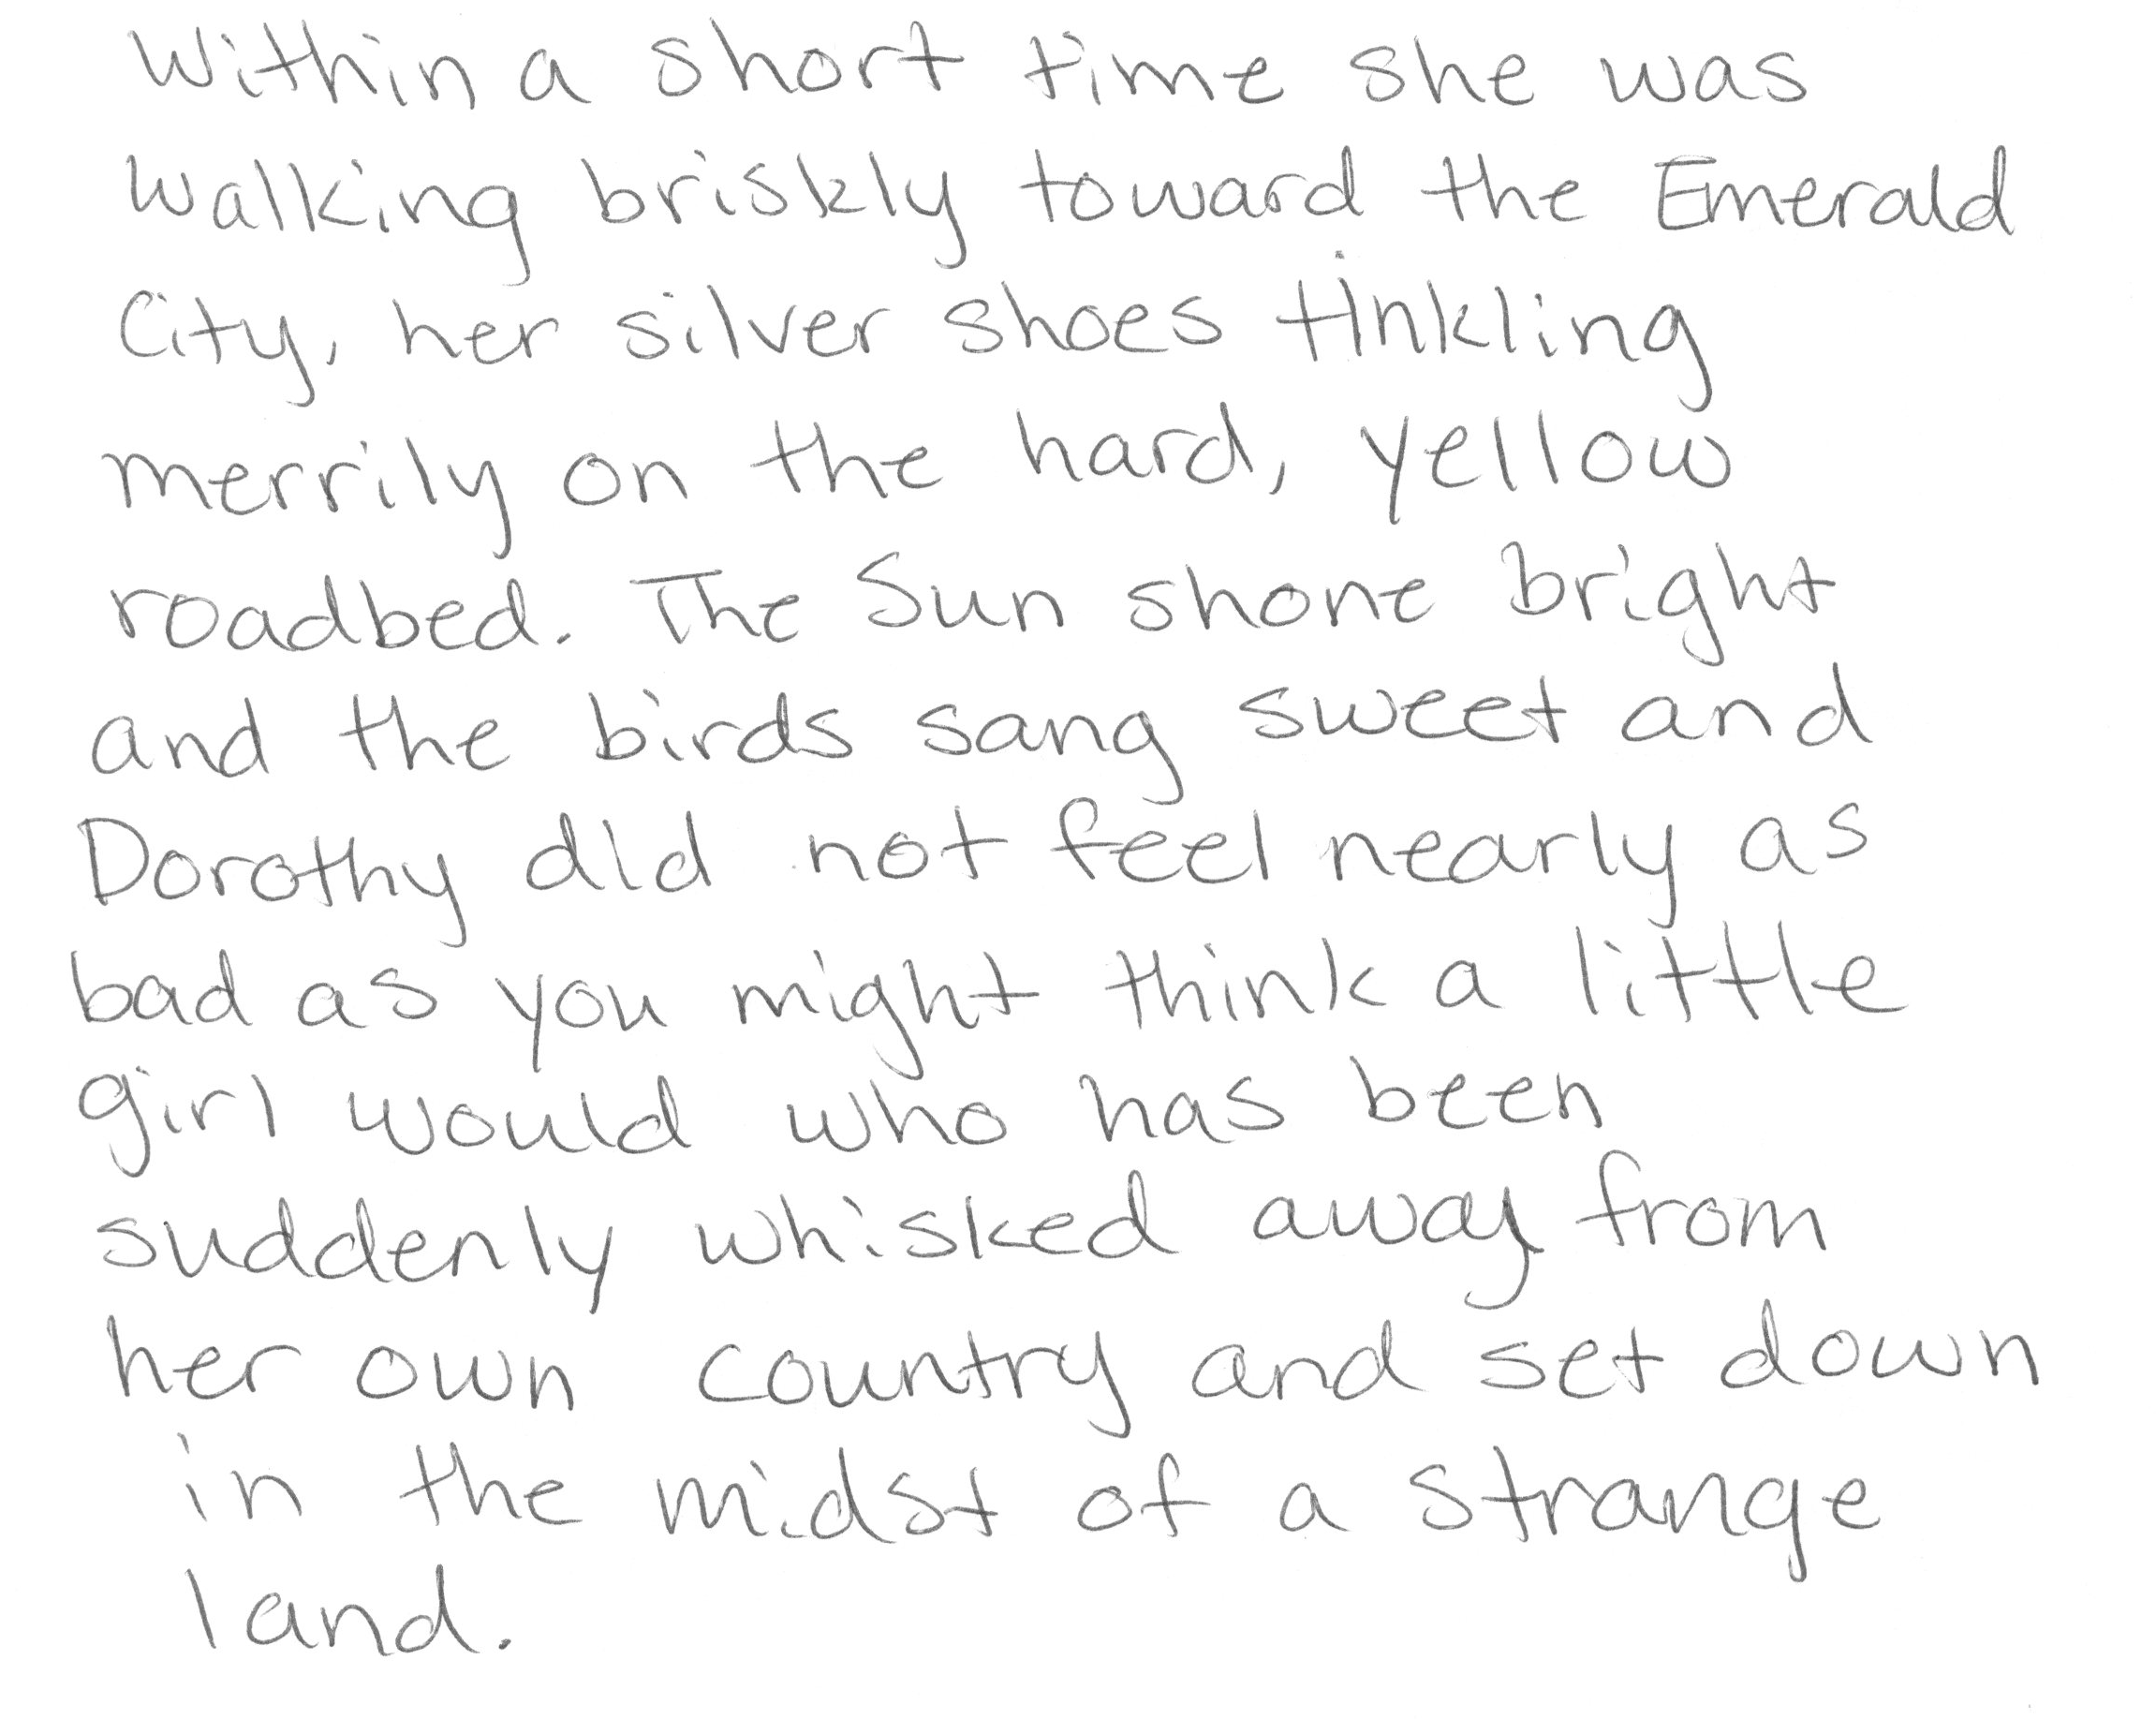 Within a short time she was
walking briskly toward the Emerald
City, her silver shoes tinkling
merrily on the hard, yellow
roadbed. The Sun shone bright
and the birds sang sweet and
Dorothy did not feel nearly as
bad as you might think a little
girl would who has been
suddenly whisked away from
her own country and set down
in the midst of a strange
land.